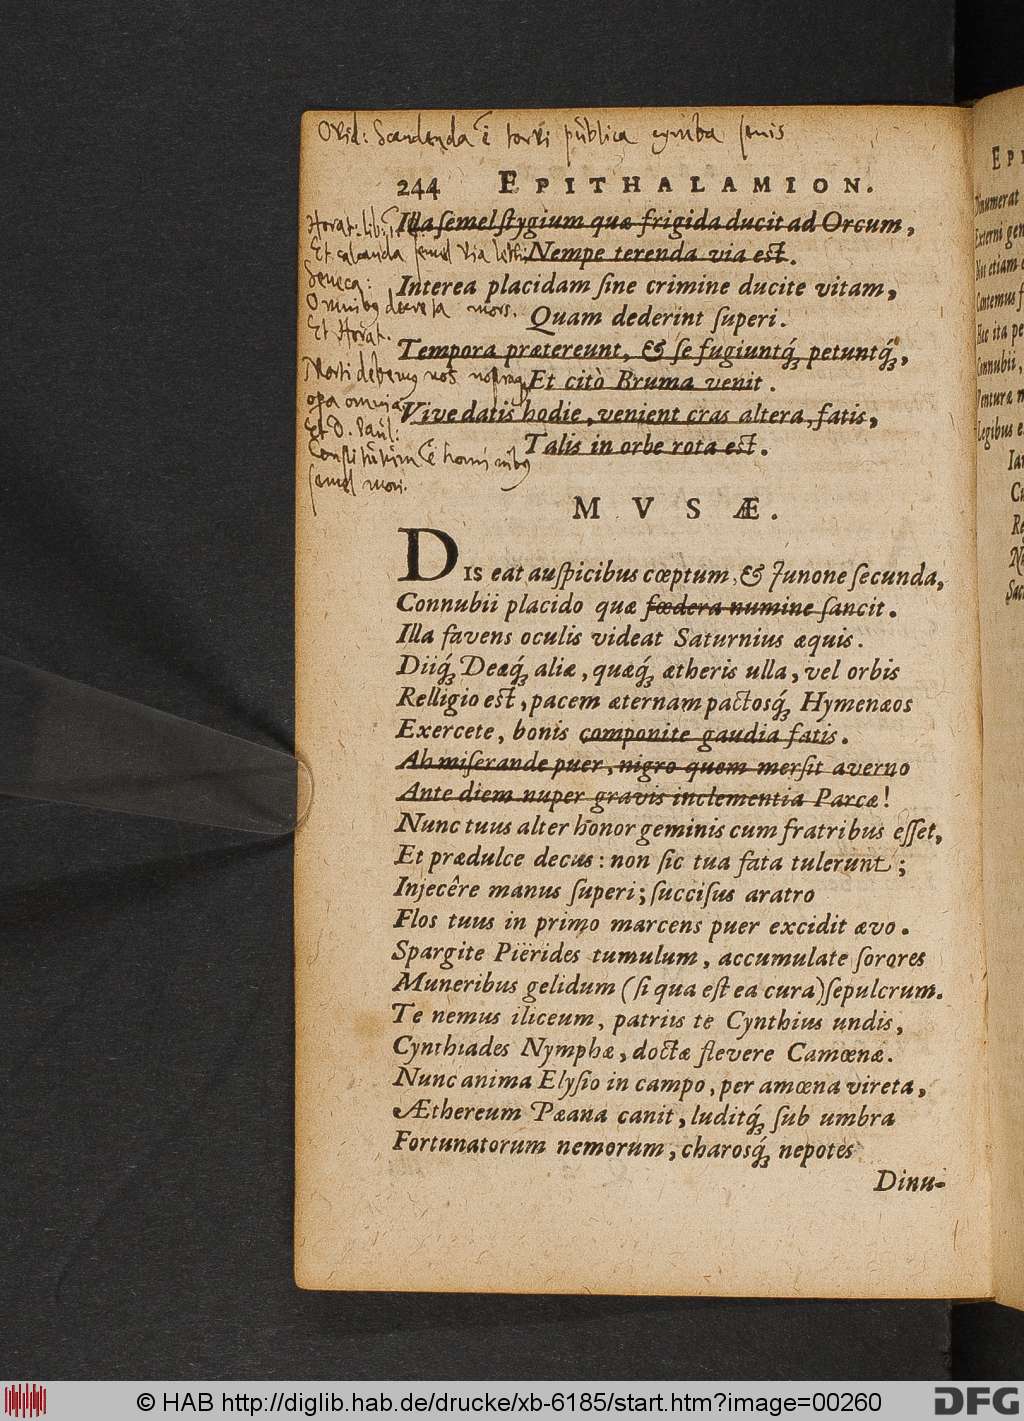 Ovid: Scandenda ē torvi publica cymba senis
244 EPITHALAMION.
Horat: lib: 1.
Et calcanda semel via lethi
Seneca:
Omnibꝰ decreta mors.
Et Horat.
Morti debemꝰ nos nostraqꝫ
Et D. Paul:
Constitutum ē hominibꝰ
semel mori.
Illa semel stygium quæ frigida ducit ad Orcum,
Nempe terenda via est.
Interea placidam ſine crimine ducite vitam,
Quam dederint ſuperi.
Tempora prætereunt, & ſe fugiuntq́ꝫ petuntq́ꝫ,
Et citò Bruma venit.
Vive datis hodie, venient cras altera, fatis,
Talis in orbe rota est.
MVSÆ.
DIS eat auſpicibus cœptum, & Junone ſecunda,
Connubii placido quæ fœdera numine ſancit.
Illa favens oculis videat Saturnius æquis.
Diiq́ꝫ Deæq́ꝫ aliæ, quæq́ꝫ ætheris ulla, vel orbis
Relligio est, pacem æternam pactosq́ꝫ Hymenæos
Exercete, bonis componite gaudia fatis.
Ah miſerande puer, nigro quem merſit averno
Ante diem nuper gravis inclementia Parcæ!
Nunc tuus alter honor geminis cum fratribus eſſet,
Et prædulce decus: non ſic tua fata tulerunt;
Injecêre manus ſuperi; ſucciſus aratro
Flos tuus in primo marcens puer excidit ævo.
Spargite Piërides tumulum, accumulate ſorores
Muneribus gelidum (ſi qua eſt ea cura) ſepulcrum.
Te nemus iliceum, patriis te Cynthius undis,
Cynthiades Nymphæ, doctæ flevere Camœnæ.
Nunc anima Elyſio in campo, per amœna vireta,
Æthereum Pæana canit, luditq́ꝫ ſub umbra
Fortunatorum nemorum, charosq́ꝫ nepotes
Dinu-
© HAB http://diglib.hab.de/drucke/xb-6185/start.htm?image=00260
DFG